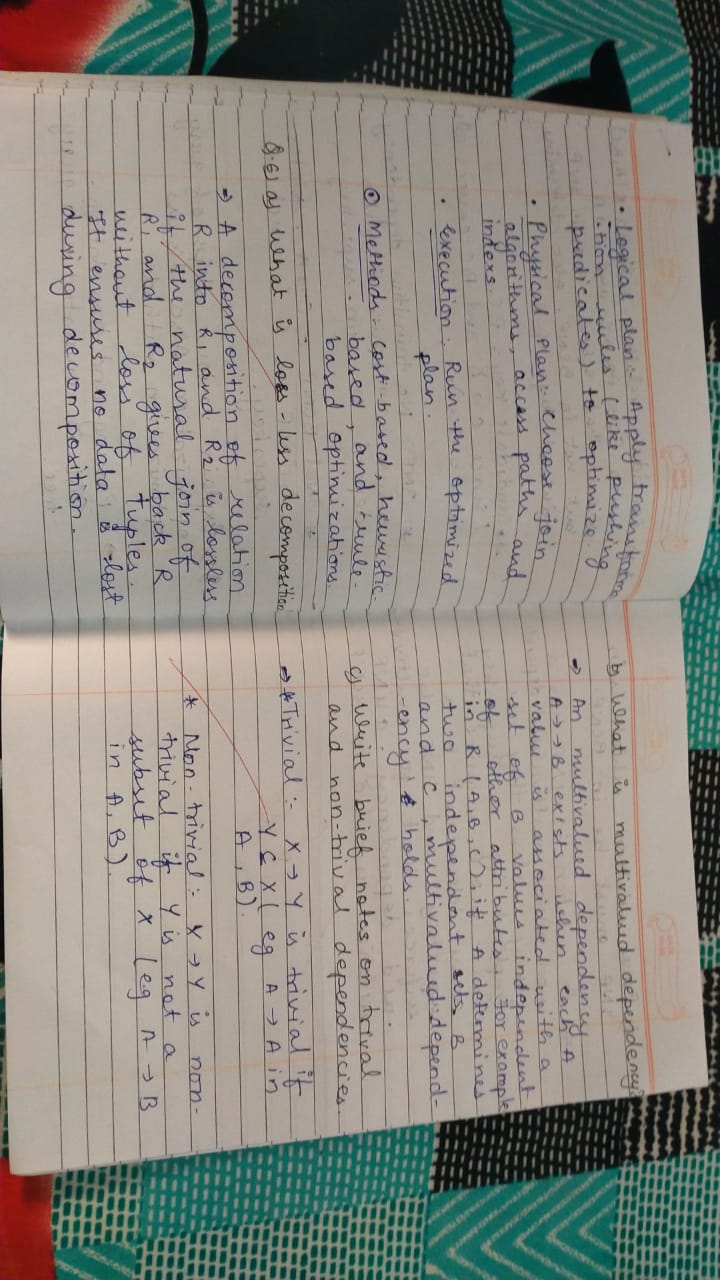 • Logical plan:- Apply transforma
-tion rules (like pushing
predicates) to optimize.
• Physical Plan:- Choose join
algorithms, access paths and
indexs.
• Execution:- Run the optimized
plan.
⊙ Methods- cost-based, heuristic-
based, and rule-
based optimizations.
Q.6) a) What is loss-less decomposition
→ A decomposition of relation
R into R1 and R2 is lossless
if the natural join of
R1 and R2 gives back R
without loss of Tuples.
It ensures no data is lost
during decomposition.
b) What is multivalued dependency?
→ An multivalued dependency
A→→B exists when each A
value is associated with a
set of B values independent
of other attributes. For example
in R (A,B,C), if A determines
two independent sets B
and C, multivalued depend-
-ency holds.
c) Write brief notes on trival
and non-trival dependencies.
→ * Trivial:- X → Y is trivial if
Y ⊆ X ( eg A → A in
A, B).
* Non-trivial:- X → Y is non-
trivial if Y is not a
subset of X (eg A → B
in A, B).